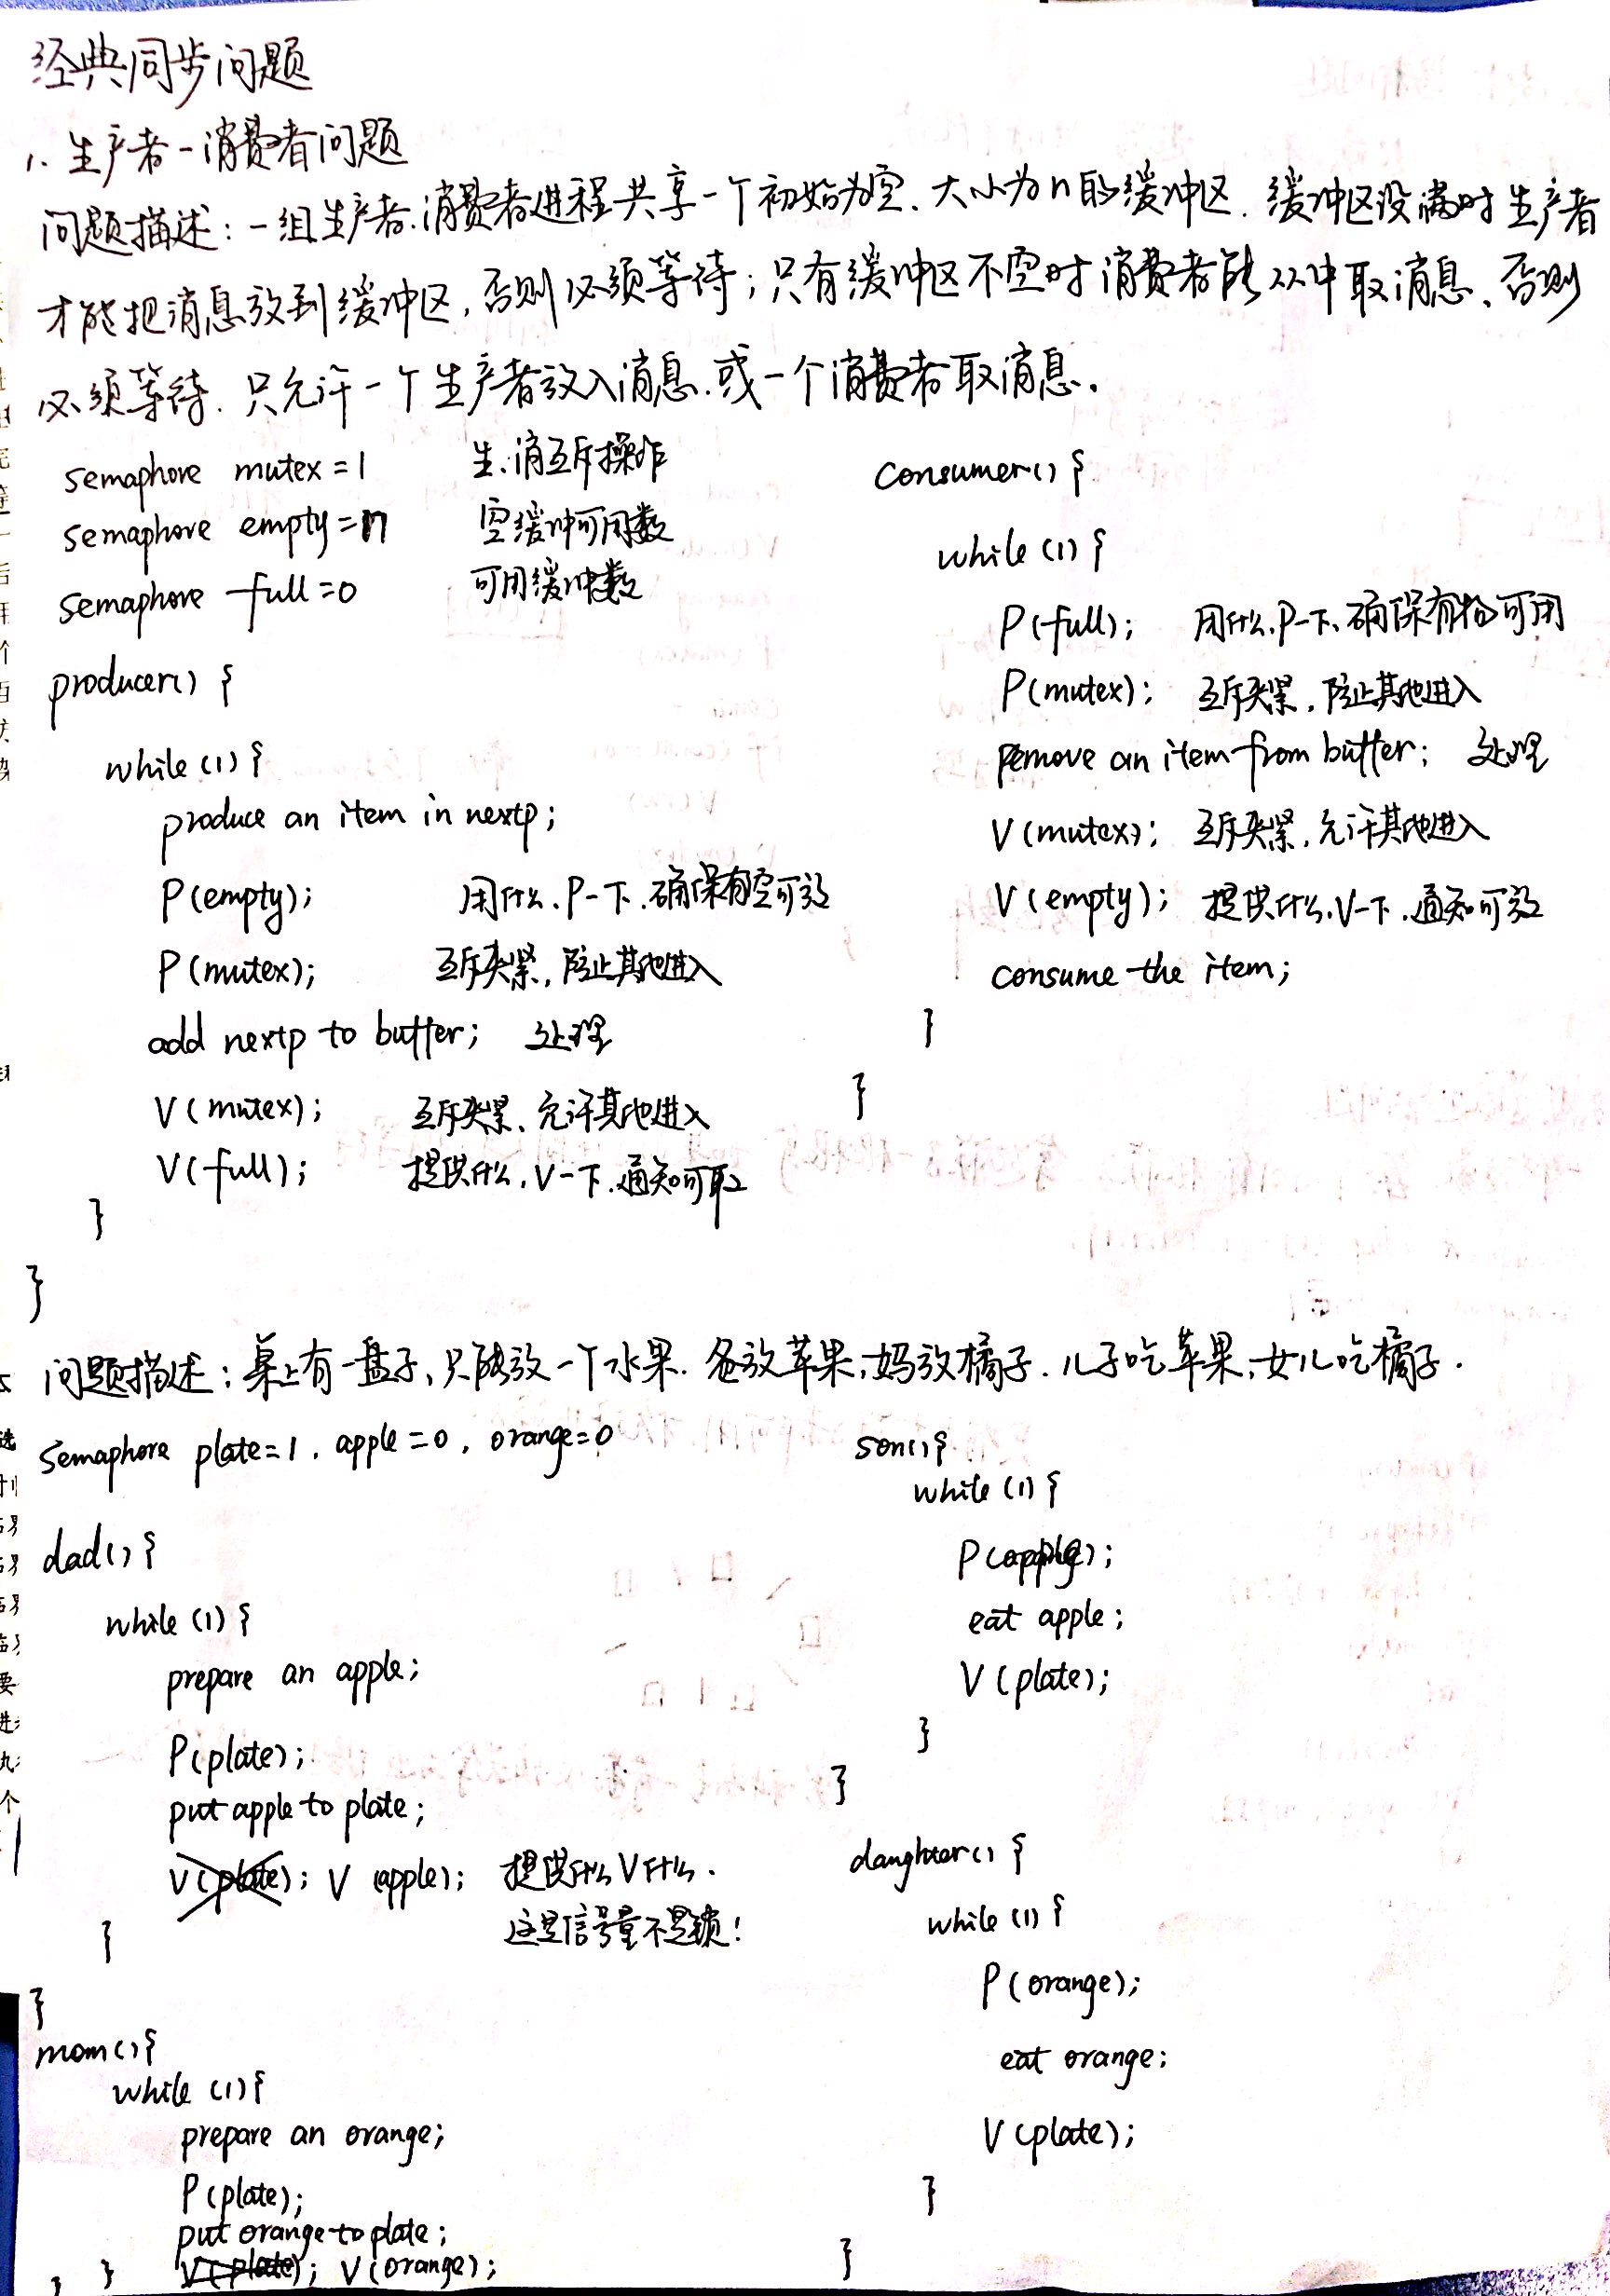 经典同步问题
1. 生产者-消费者问题
问题描述：一组生产者.消费者进程共享一个初始为空、大小为n的缓冲区. 缓冲区没满时生产者
才能把消息放到缓冲区，否则必须等待；只有缓冲区不空时消费者能从中取消息、否则
必须等待. 只允许一个生产者放入消息.或一个消费者取消息.
semaphore mutex=1 生.消互斥操作
semaphore empty=n 空缓冲可用数
semaphore full=0 可用缓冲数
producer() {
while (1) {
produce an item in nextp;
P(empty); 用什么.P一下.确保有空可放
P(mutex); 互斥夹紧，防止其他进入
add nextp to buffer; 处理
V(mutex); 互斥夹紧、允许其他进入
V(full); 提供什么，V一下.通知可取
}
}
consumer() {
while (1) {
P(full); 用什么.P一下、确保有物可用
P(mutex); 互斥夹紧，防止其他进入
remove an item from buffer; 处理
V(mutex); 互斥夹紧，允许其他进入
V(empty); 提供什么.V一下.通知可放
consume the item;
}
}
问题描述：桌上有一盘子、只能放一个水果. 爸放苹果,妈放橘子. 儿子吃苹果,女儿吃橘子.
semaphore plate=1, apple=0, orange=0
dad() {
while (1) {
prepare an apple;
P(plate);
put apple to plate;
V(plate); V(apple); 提供什么V什么.
这是信号量不是锁!
}
}
mom() {
while (1) {
prepare an orange;
P(plate);
put orange to plate;
V(plate); V(orange);
} }
son() {
while (1) {
P(apple);
eat apple;
V(plate);
}
}
daughter() {
while (1) {
P(orange);
eat orange;
V(plate);
}
}